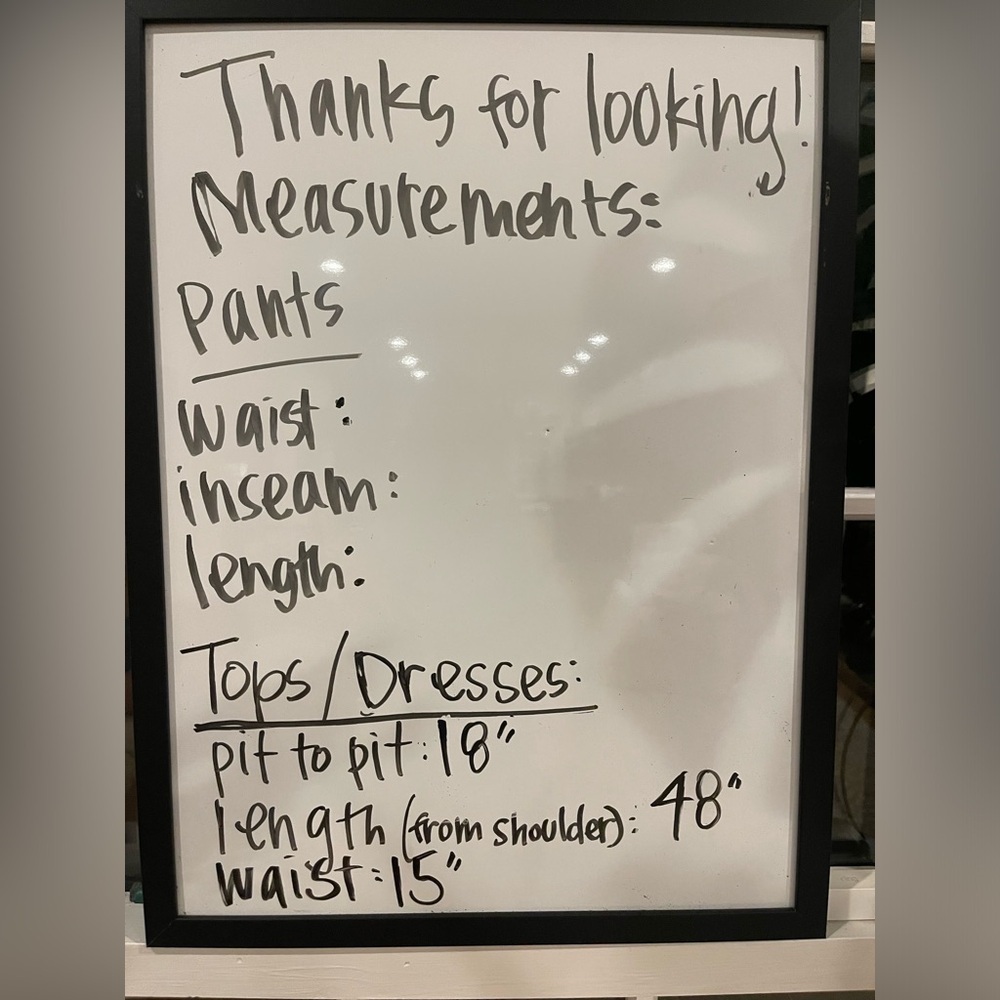 Thanks for looking!
Measurements:
Pants
waist:
inseam:
length:
Tops/Dresses:
pit to pit: 18"
length (from shoulder): 48"
waist: 15"